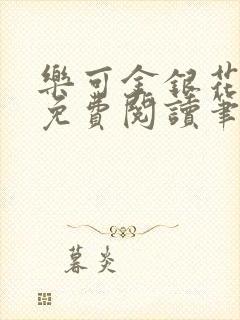 樂可金銀花
免費閱讀筆
暮炎